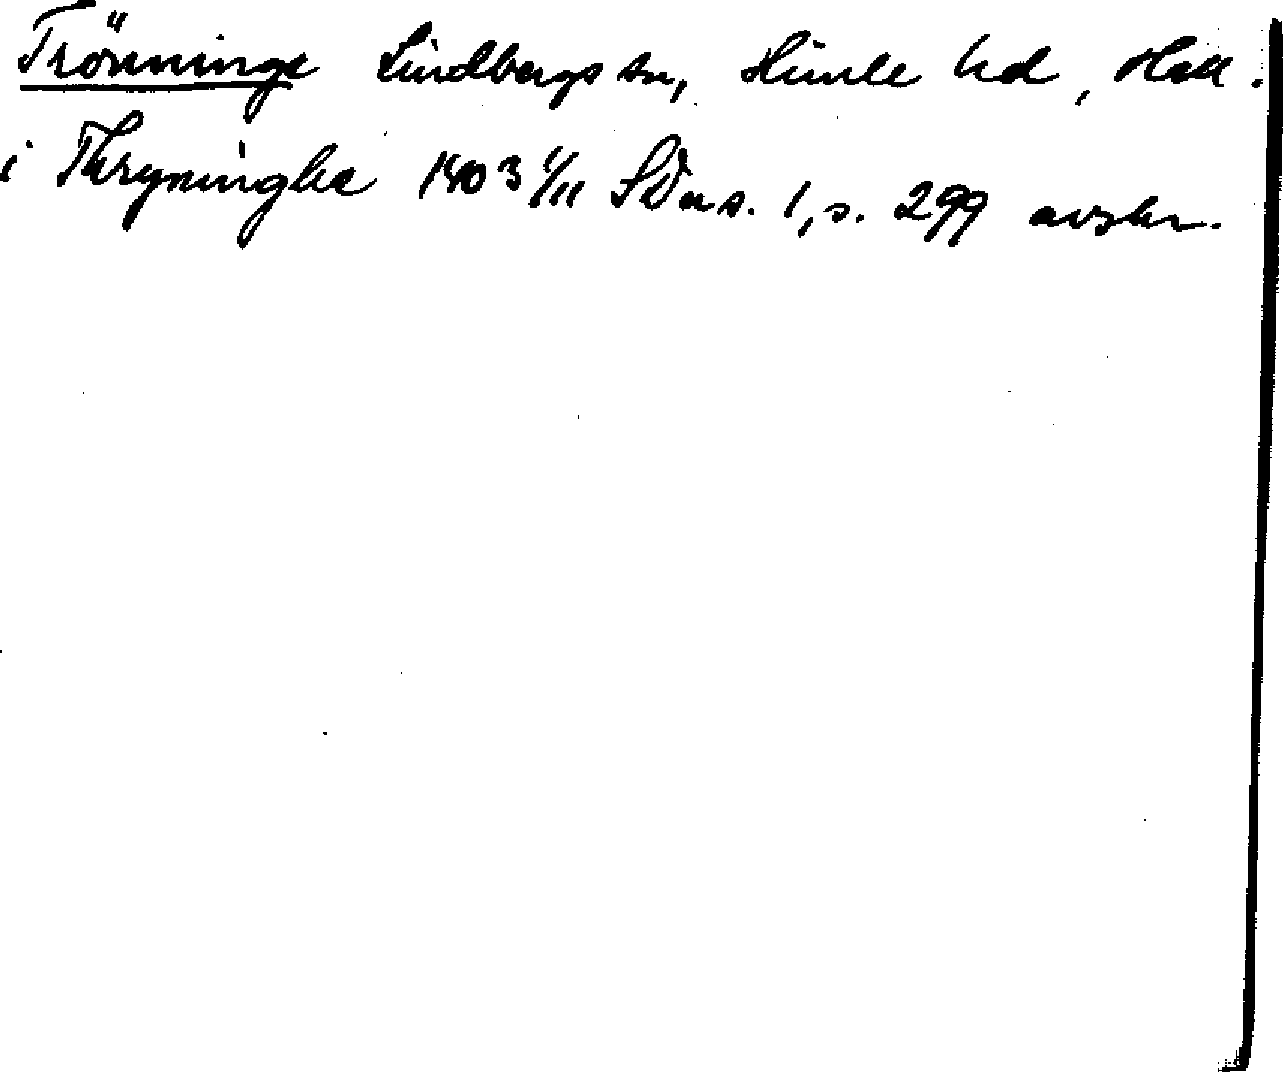 Trönninge Lindbergs sn, Himle hd, Hall.
i Thryninghe 1403 1/11 SD ns. 1, s. 299 avskr.